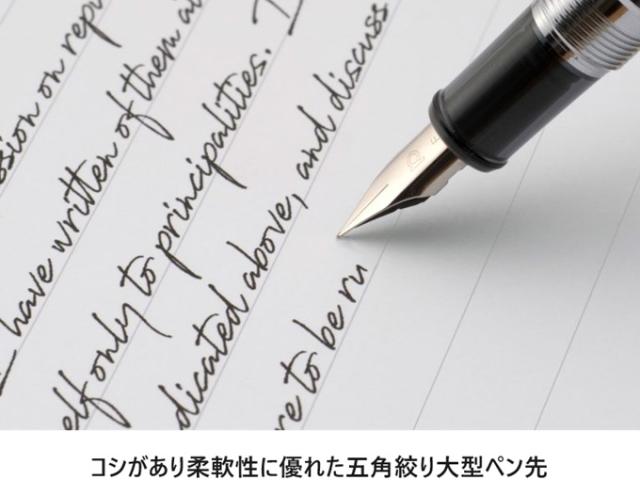 ssion on repu
I have written of them at
elf only to principalities. I
dicated above, and discuss
re to be ru
コシがあり柔軟性に優れた五角絞り大型ペン先